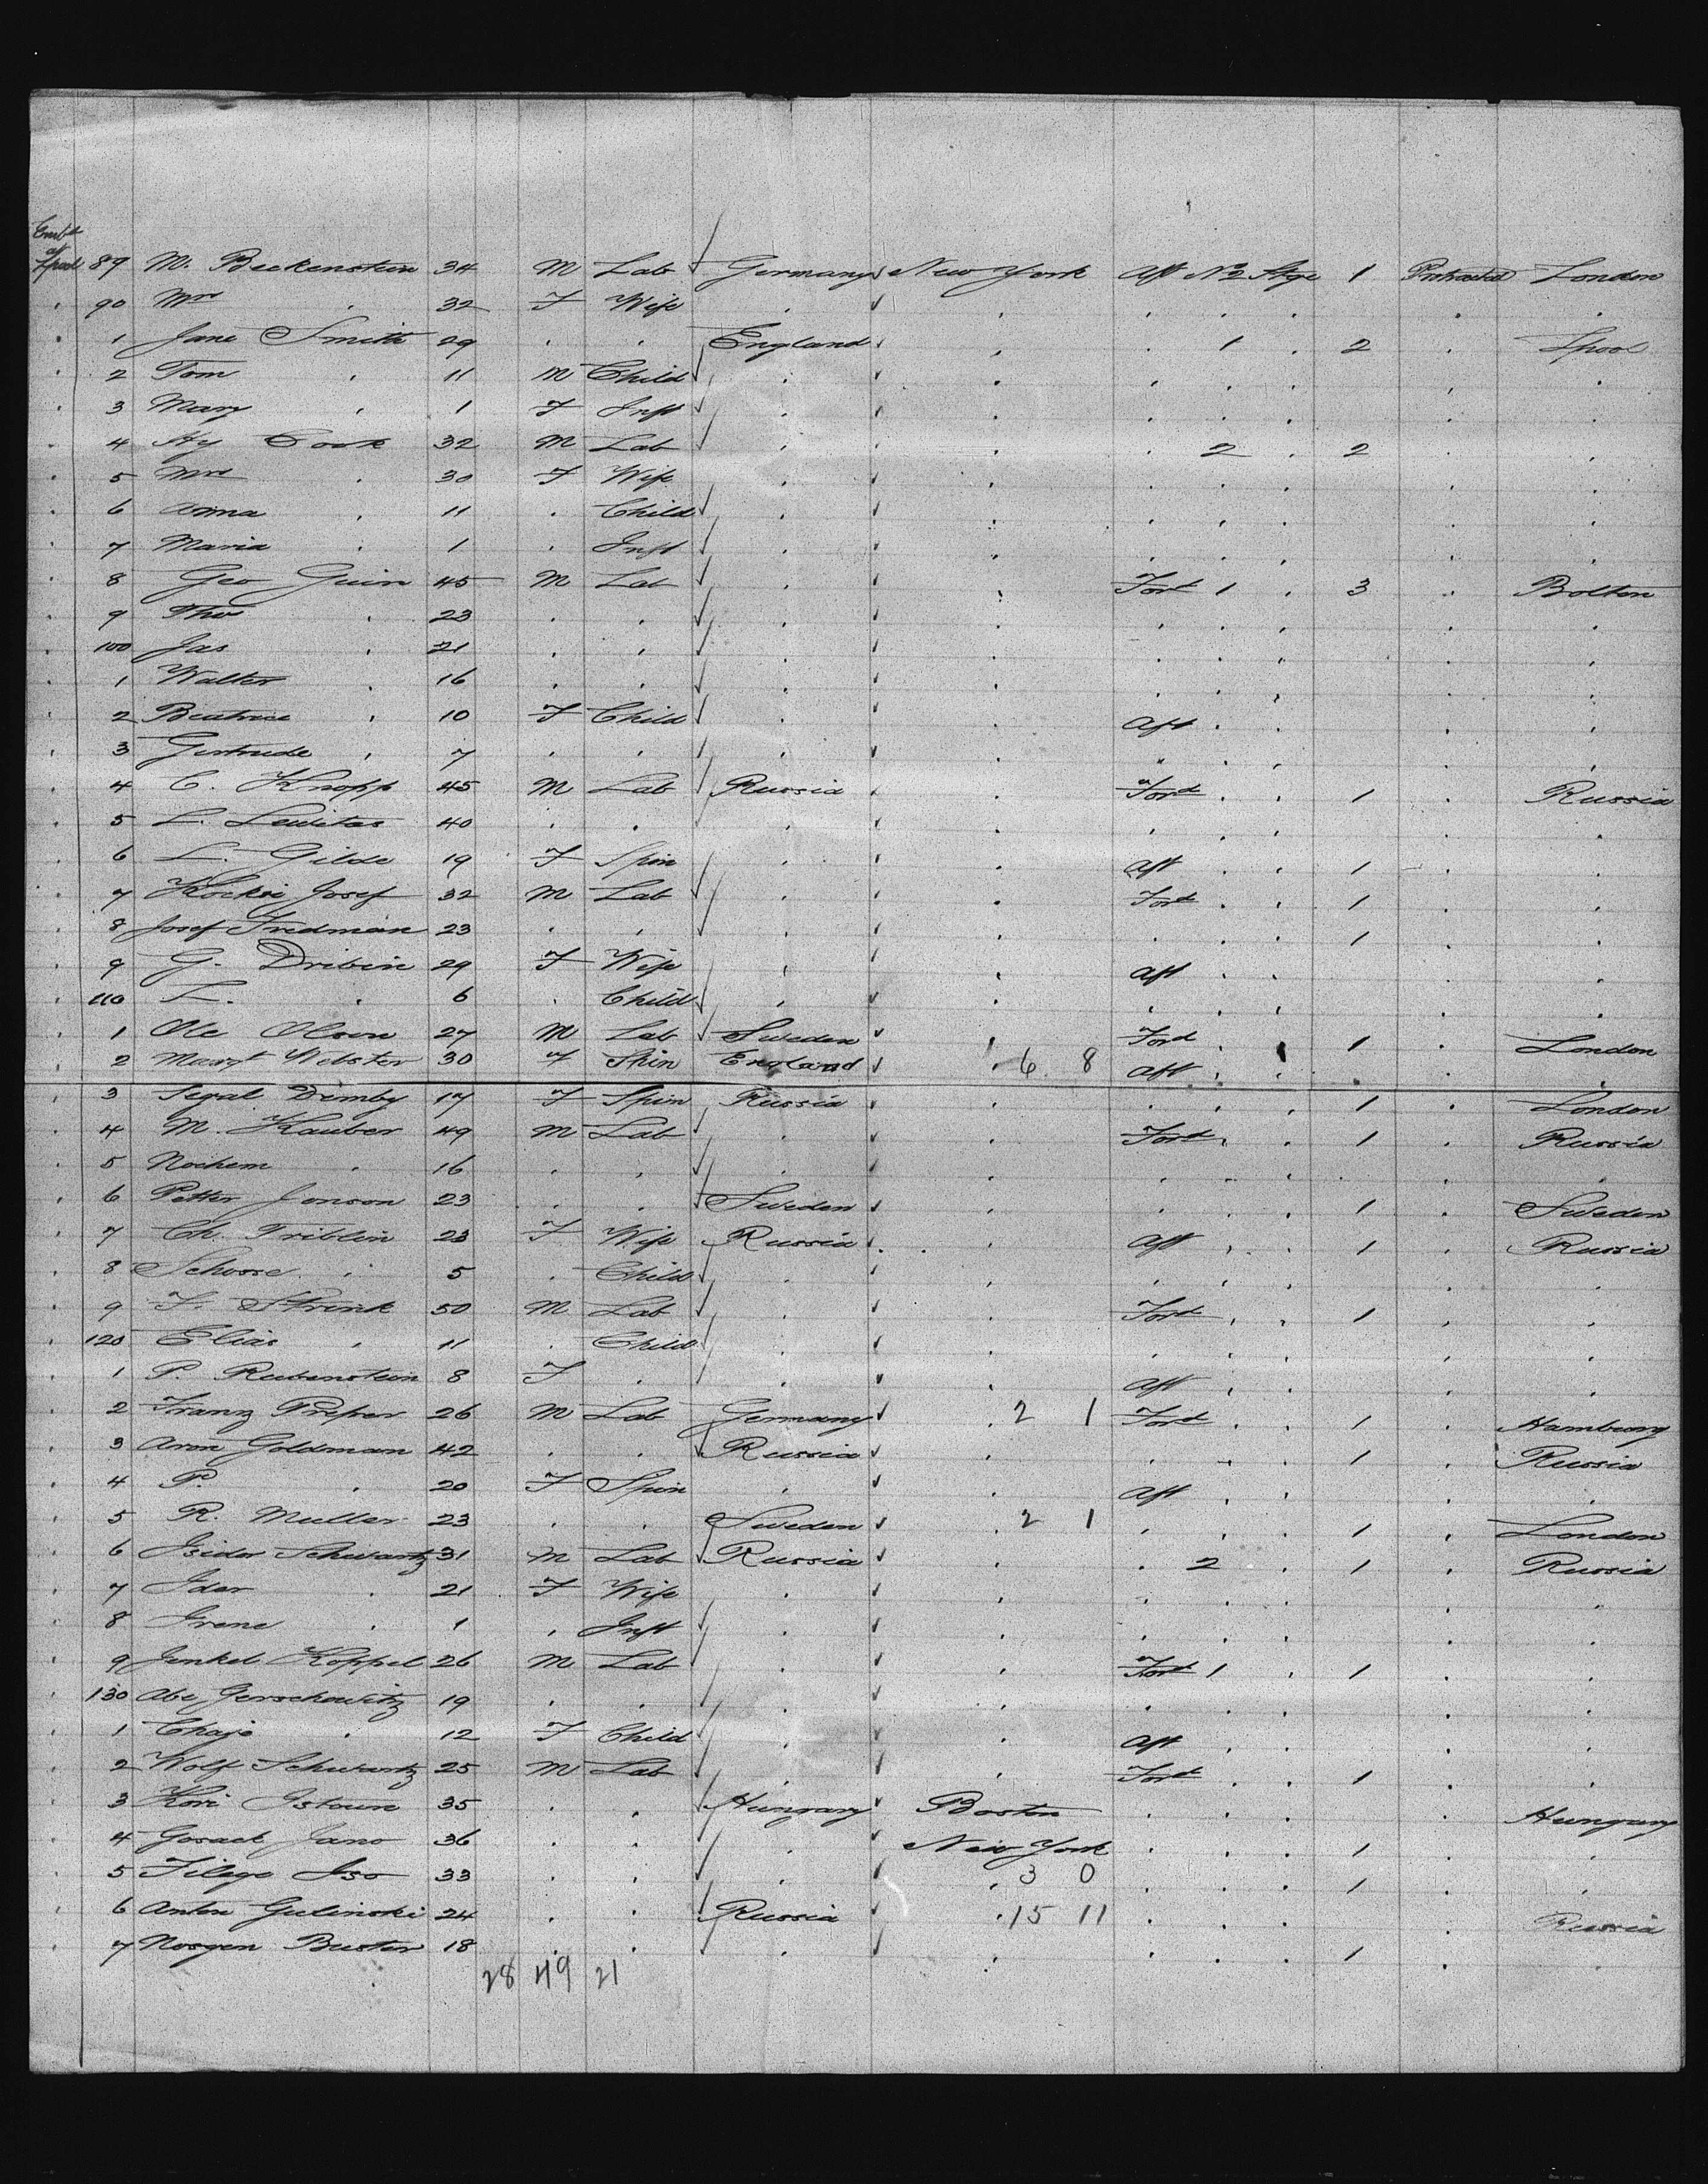 Embd
at
Lpool 89 M. Beckenstein 34 M Lab Germany New York Aft No 2 Stge 1 Protracted London
" 90 Mrs " 32 F Wife " " " " " " "
" 1 Jane Smith 29 " " England " " 1 " 2 " Lpool
" 2 Tom " 11 M Child " " " " " " "
" 3 Mary " 1 F Inft " " " " " " "
" 4 Hy Cook 32 M Lab " " " 2 " 2 " "
" 5 Mrs " 30 F Wife " " " " " " "
" 6 Anna " 11 " Child " " " " " " "
" 7 Maria " 1 " Inft " " " " " " "
" 8 Geo Guin 45 M Lab " " Ford 1 " 3 " Bolton
" 9 Thos " 23 " " " " " " " " "
" 100 Jas " 21 " " " " " " " " "
" 1 Walter " 16 " " " " " " " " "
" 2 Beatrice " 10 F Child " " Aft " " " "
" 3 Gertrude " 7 " " " " " " " " "
" 4 C. Knopp 45 M Lab Russia " Ford " " 1 " Russia
" 5 L. Lewitas 40 " " " " " " " " "
" 6 L. Gilde 19 F Spin " " Aft " " 1 " "
" 7 Josef 32 M Lab " " Ford " " 1 " "
" 8 Josef Fredman 23 " " " " " " " 1 " "
" 9 G. Dribin 29 F Wife " " Aft " " " "
" 110 L. " 6 " Child " " " " " " "
" 1 Ole Olsen 27 M Lab Sweden " Ford " " 1 " London
" 2 Margt Webster 30 F Spin England " 6 8 Aft " " " "
" 3 Segal Dimby 17 F Spin Russia " " " " 1 " London
" 4 M. Kauber 49 M Lab " " Ford " " 1 " Russia
" 5 Nochem " 16 " " " " " " " " "
" 6 Petter Jonson 23 " " Sweden " " " " 1 " Sweden
" 7 Ch. Triblin 23 F Wife Russia " Aft " " 1 " Russia
" 8 Schosse " 5 " Child " " " " " " "
" 9 F. Strink 50 M Lab " " Ford " " 1 " "
" 120 Elias " 11 " Child " " " " " " "
" 1 P. Rubenstein 8 F " " " Aft " " " "
" 2 Franz 26 M Lab Germany " 2 1 Ford " " 1 " Hamburg
" 3 Aron Goldman 42 " " Russia " " " " 1 " Russia
" 4 P. " 20 F Spin " " Aft " " " "
" 5 R. Muller 23 " " Sweden " 2 1 " " " 1 " London
" 6 Isidor Schwartz 31 M Lab Russia " " 2 " 1 " Russia
" 7 Ider " 21 F Wife " " " " " " "
" 8 Irene " 1 " Inft " " " " " " "
" 9 Jenkel Koppel 26 M Lab " " Ford 1 " 1 " "
" 130 Abe Gerschowitz 19 " " " " " " " " "
" 1 Chaje " 12 F Child " " Aft " " " "
" 2 Wolf Schwartz 25 M Lab " " Ford " " 1 " "
" 3 Kori 35 " " Hungary Boston " " " " Hungary
" 4 Gosack Jano 36 " " " New York " " " 1 " "
" 5 Filego Iso 33 " " " " 3 0 " " " 1 " "
" 6 Anton Gulinski 24 " " Russia " 15 11 " " " " Russia
" 7 Buster 18 " " " " " " " 1 " "
28 49 21